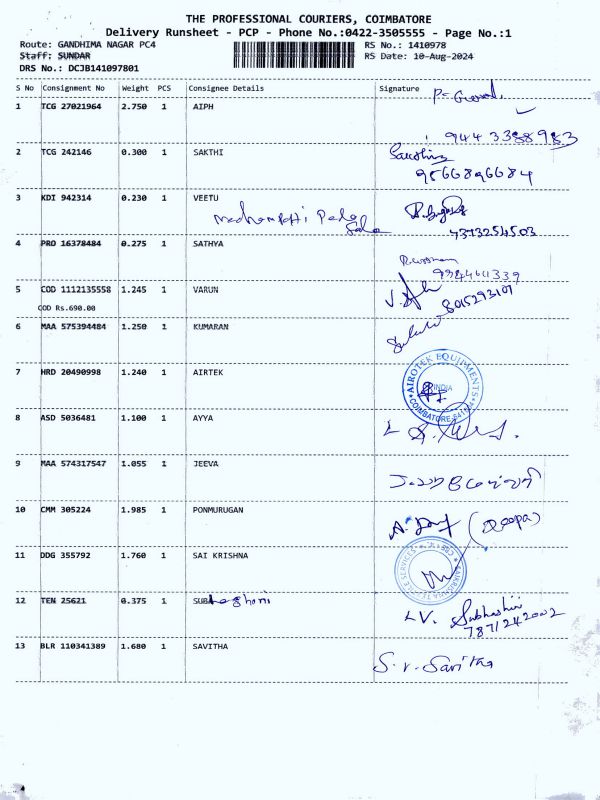 THE PROFESSIONAL COURIERS, COIMBATORE
Delivery Runsheet - PCP - Phone No.:0422-3505555 - Page No.:1
Route: GANDHIMA NAGAR PC4 RS No.: 1410978
Staff: SUNDAR RS Date: 10-Aug-2024
DRS No.: DCJB141097801
S No Consignment No Weight PCS Consignee Details Signature
1 TCG 27021964 2.750 1 AIPH
944 3388983
2 TCG 242146 0.300 1 SAKTHI
9566896684
3 KDI 942314 0.230 1 VEETU
4 PRO 16378484 0.275 1 SATHYA
5 COD 1112135558 1.245 1 VARUN
8015293107
COD Rs.690.00
6 MAA 575394484 1.250 1 KUMARAN
7 HRD 20490998 1.240 1 AIRTEK
AIROTEK EQUIPMENTS
INDIA
8 ASD 5036481 1.100 1 AYYA
9 MAA 574317547 1.055 1 JEEVA
10 CMM 305224 1.985 1 PONMURUGAN
(Deepa)
11 DDG 355792 1.760 1 SAI KRISHNA
12 TEN 25621 0.375 1
LV. Subhashini
7871242002
13 BLR 110341389 1.680 1 SAVITHA
S. V. Savitha